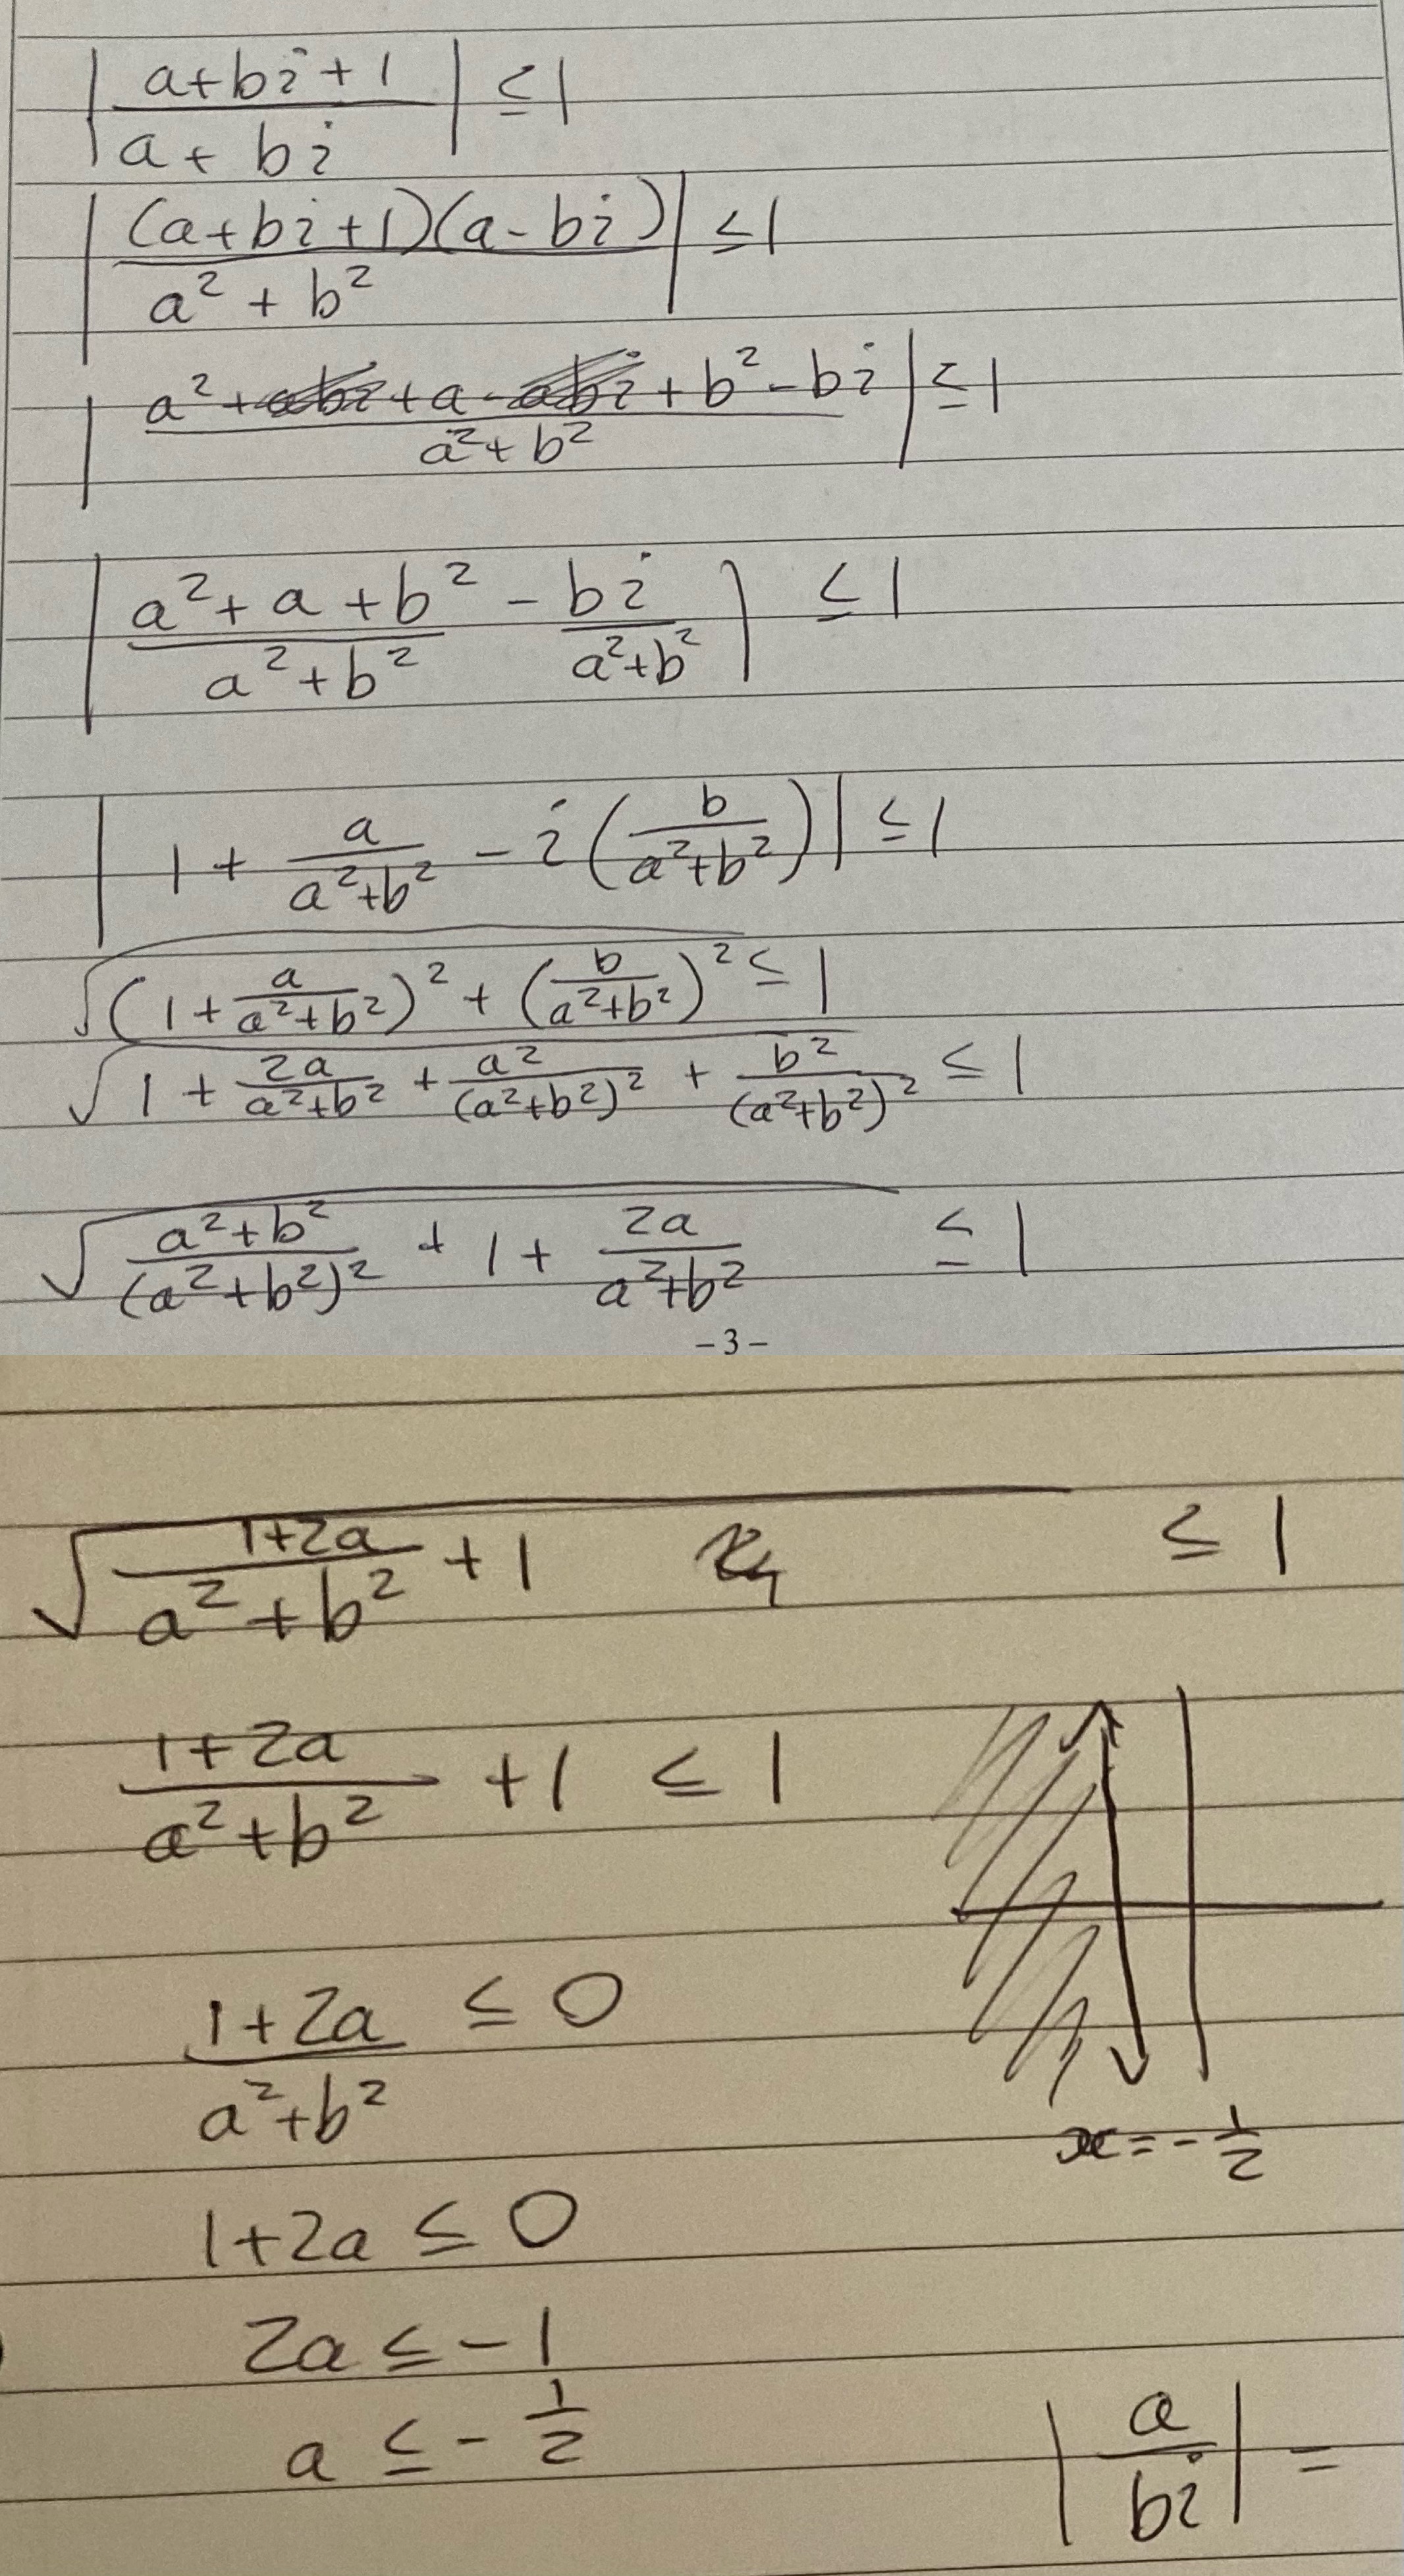 |(a+bi+1)/(a+bi)| ≤ 1
|((a+bi+1)(a-bi))/(a²+b²)| ≤ 1
|(a²+abi+a-abi+b²-bi)/(a²+b²)| ≤ 1
|(a²+a+b²)/(a²+b²) - bi/(a²+b²)| ≤ 1
|1 + a/(a²+b²) - i(b/(a²+b²))| ≤ 1
√((1+a/(a²+b²))² + (b/(a²+b²))²) ≤ 1
√(1 + 2a/(a²+b²) + a²/(a²+b²)² + b²/(a²+b²)²) ≤ 1
√((a²+b²)/(a²+b²)² + 1 + 2a/(a²+b²)) ≤ 1
-3-
√((1+2a)/(a²+b²) + 1) ≤ 1
(1+2a)/(a²+b²) + 1 ≤ 1
(1+2a)/(a²+b²) ≤ 0
x = -1/2
1+2a ≤ 0
2a ≤ -1
a ≤ -1/2
|a/bi| =